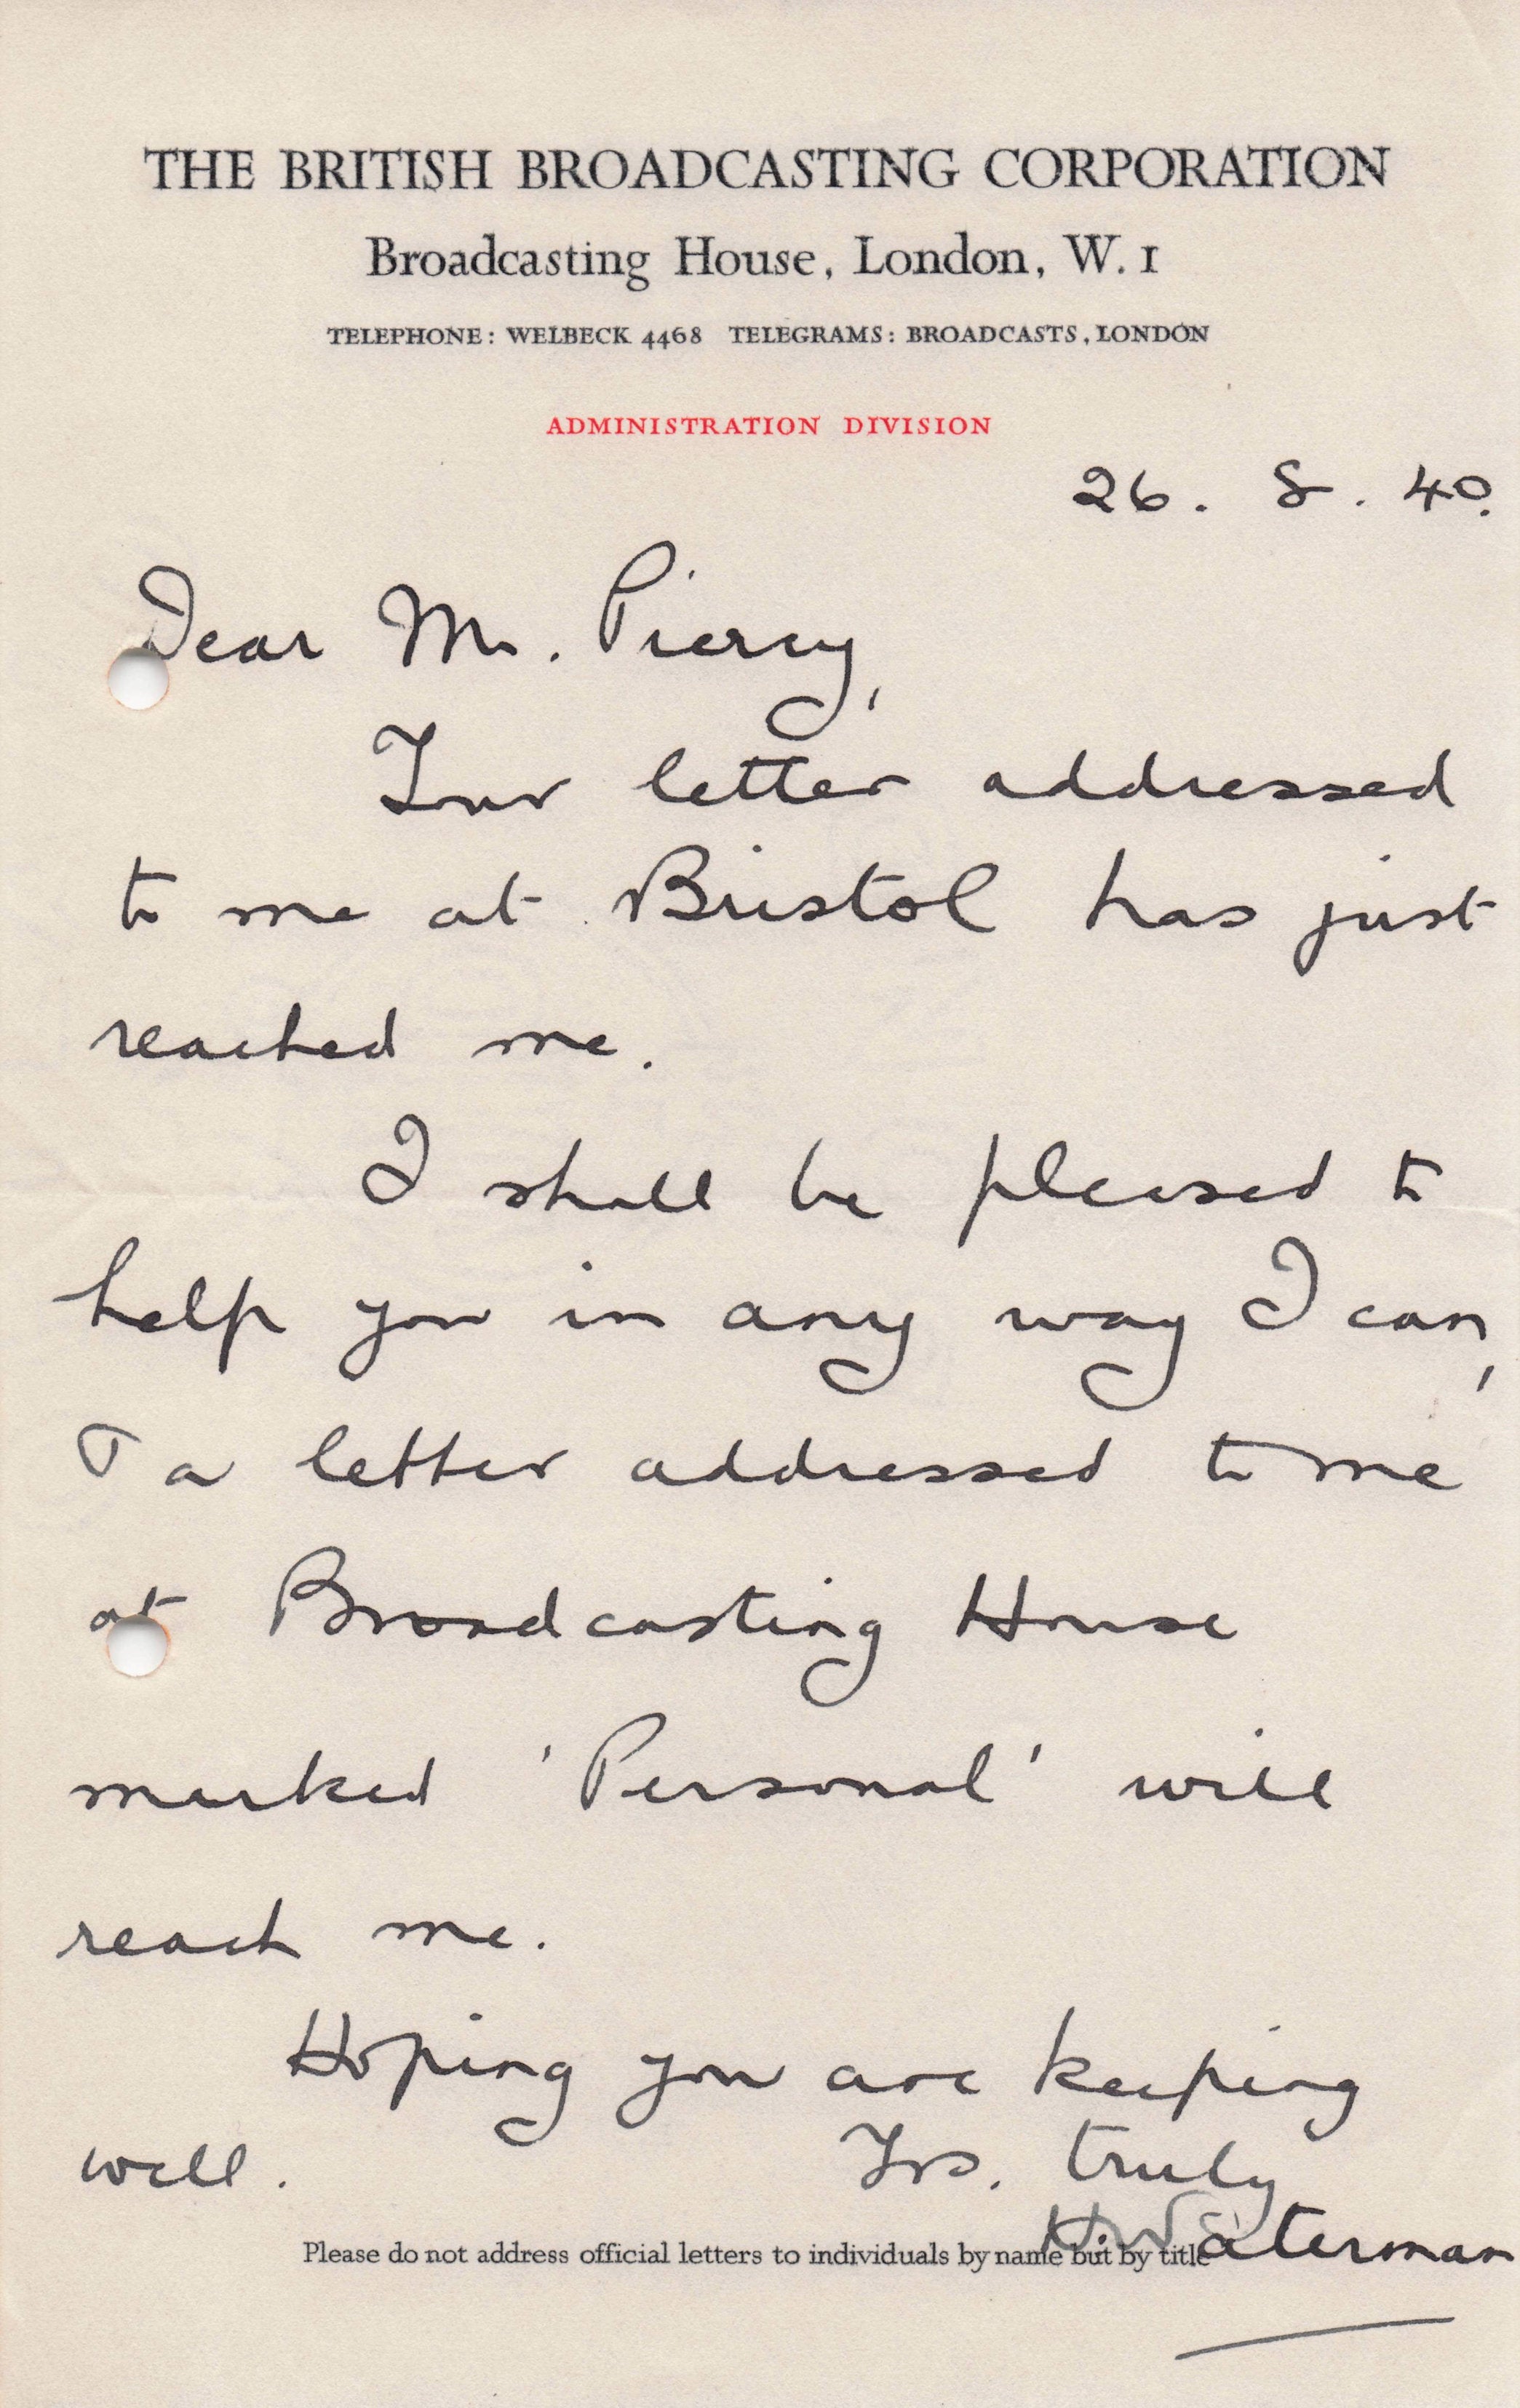 THE BRITISH BROADCASTING CORPORATION
Broadcasting House, London, W. 1
TELEPHONE: WELBECK 4468 TELEGRAMS: BROADCASTS, LONDON
ADMINISTRATION DIVISION
26. 8. 40.
Dear Mr. Piercy,
Your letter addressed
to me at Bristol has just
reached me.
I shall be pleased to
help you in any way I can,
& a letter addressed to me
at Broadcasting House
marked 'Personal' will
reach me.
Hoping you are keeping
well. Yrs. truly
H. Waterman
Please do not address official letters to individuals by name but by title